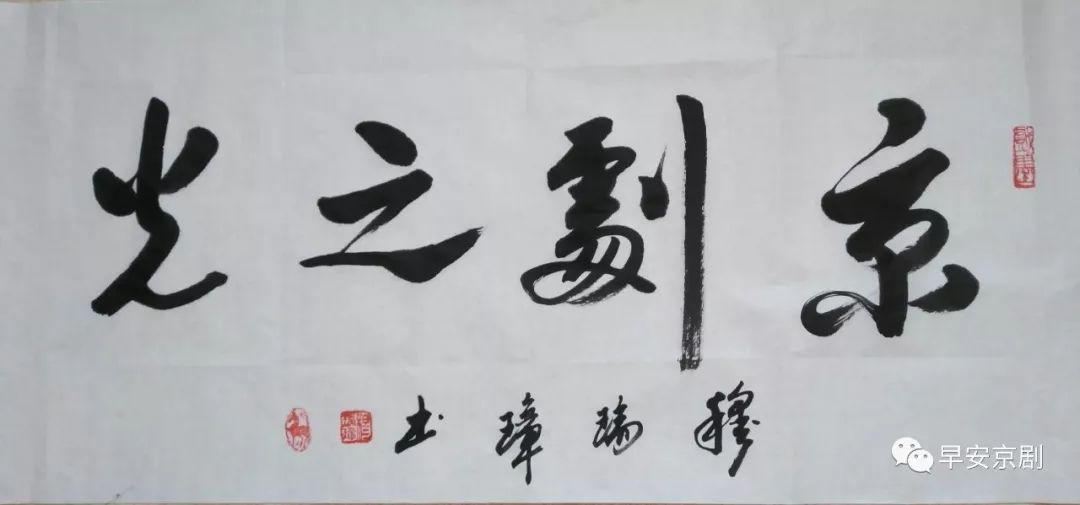 京劇之光
穆瑞璋书
早安京剧